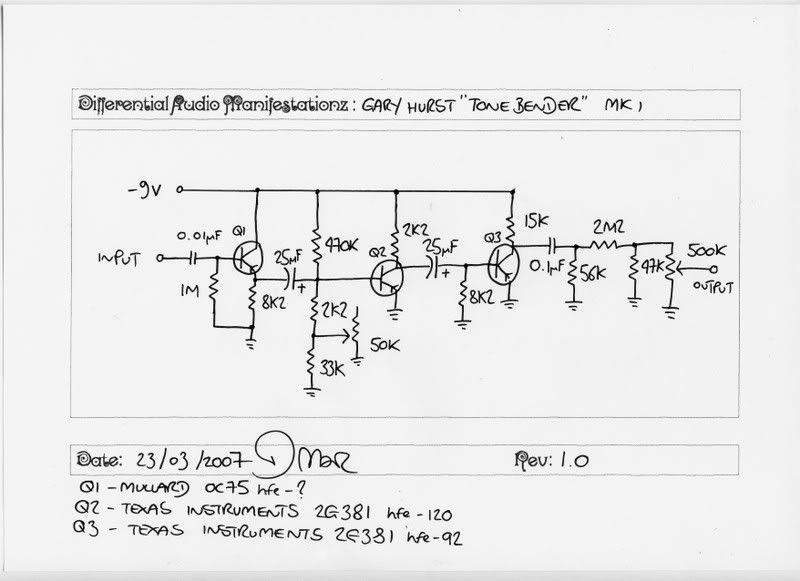 Differential Audio Manifestationz : GARY HURST "TONE BENDER" MK1
-9V
Q1
0.01µF
INPUT
1M
8K2
25µF
+
470K
2K2
33K
50K
Q2
2K2
25µF
+
8K2
Q3
15K
0.1µF
56K
2M2
47K
500K
OUTPUT
Date: 23/03/2007
Rev: 1.0
Q1 - MULLARD OC75 hfe - ?
Q2 - TEXAS INSTRUMENTS 2G381 hfe - 120
Q3 - TEXAS INSTRUMENTS 2G381 hfe - 92